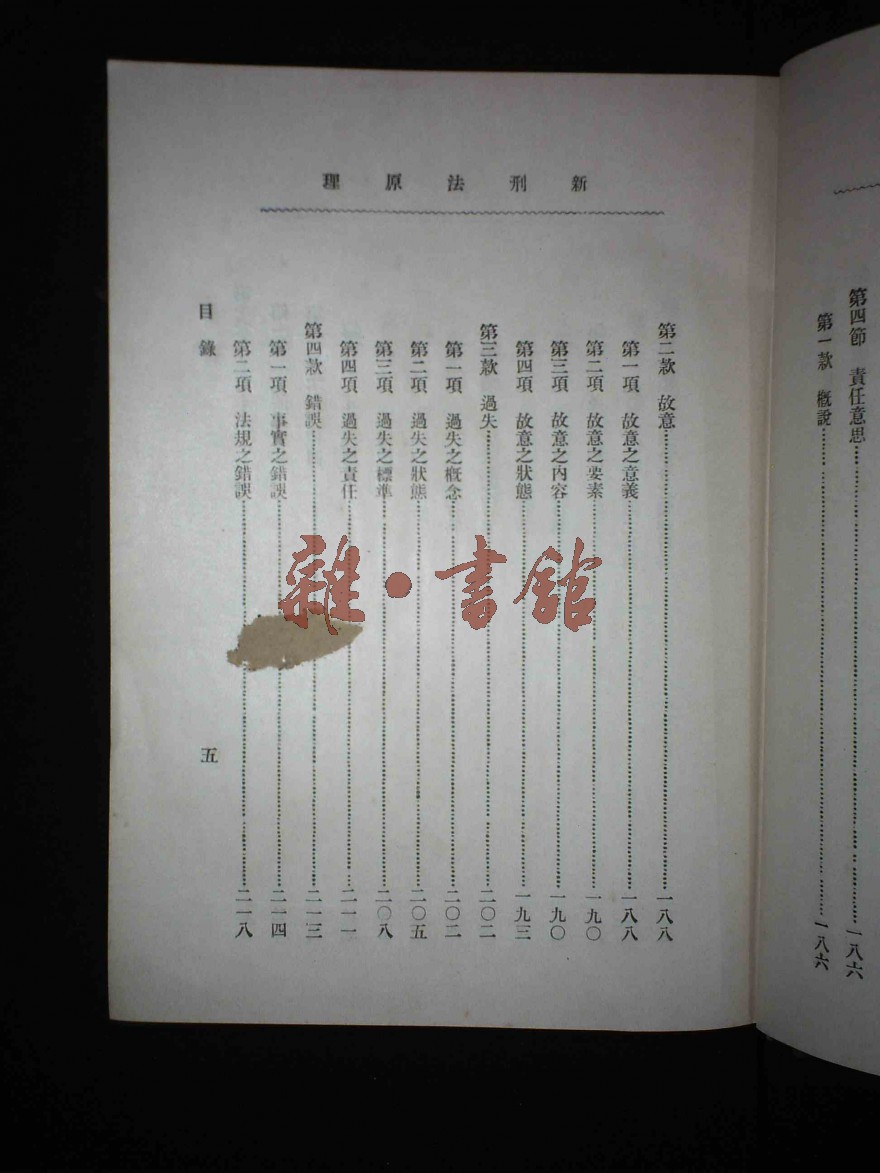 第四節　責任意思……一八六
第一款　概說……一八六
新刑法原理
第二款　故意……一八八
第一項　故意之意義……一八八
第二項　故意之要素……一九〇
第三項　故意之內容……一九〇
第四項　故意之狀態……一九三
第三款　過失……二〇二
第一項　過失之概念……二〇二
第二項　過失之狀態……二〇五
第三項　過失之標準……二〇八
第四項　過失之責任……二一一
第四款　錯誤……二一三
第一項　事實之錯誤……二一四
第二項　法規之錯誤……二一八
目錄
五
雜·書館